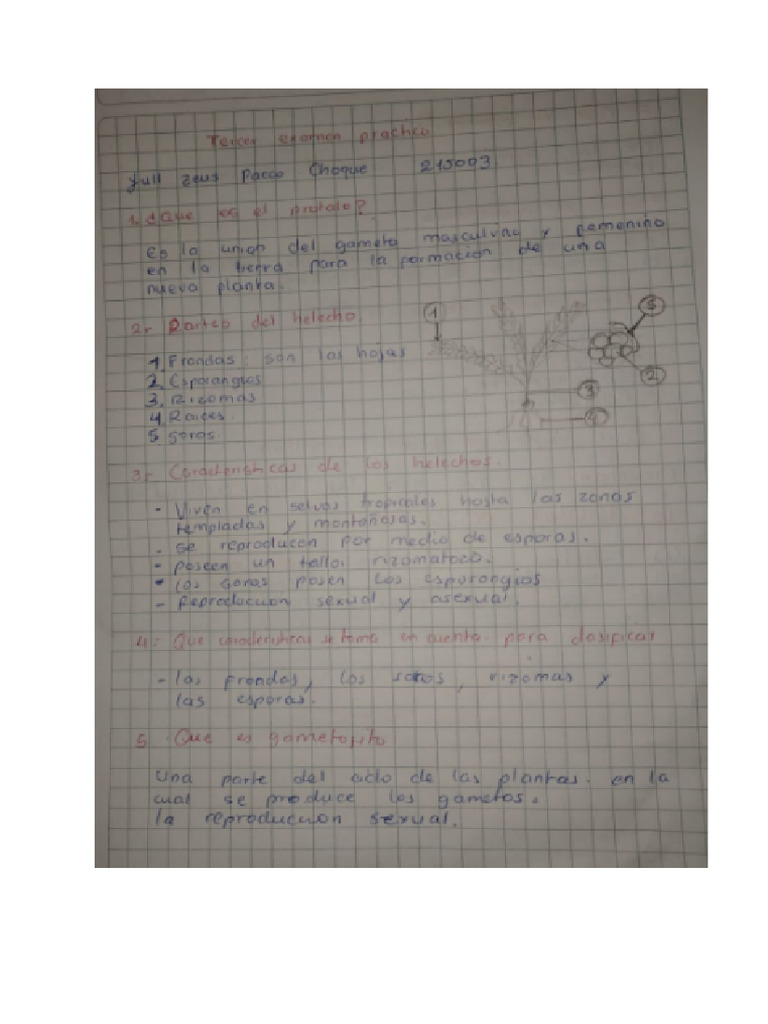 Tercer examen practico
Yull Zeus Pacco Choque 215003
1. ¿Que es el protalo?
Es la union del gameto masculino y femenino
en la tierra para la formacion de una
nueva planta.
2.- Partes del helecho.
1 Frondas: son las hojas
2 Esporangios
3. Rizomas
4 Raices.
5 Soros.
1
5
2
3
4
3.- Caracteristicas de los helechos.
- Viven en selvas tropicales hasta las zonas
templadas y montañosas.
- Se reproducen por medio de esporas.
- poseen un tallo rizomatoco.
- los soros posen los esporangios
- Reproduccion sexual y asexual.
4: Que caracteristicas se toma en cuenta para clasificar
- las frondas, los soros, rizomas y
las esporas.
5. Que es gametofito
Una parte del ciclo de las plantas. en la
cual se produce los gametos.
la reproduccion sexual.